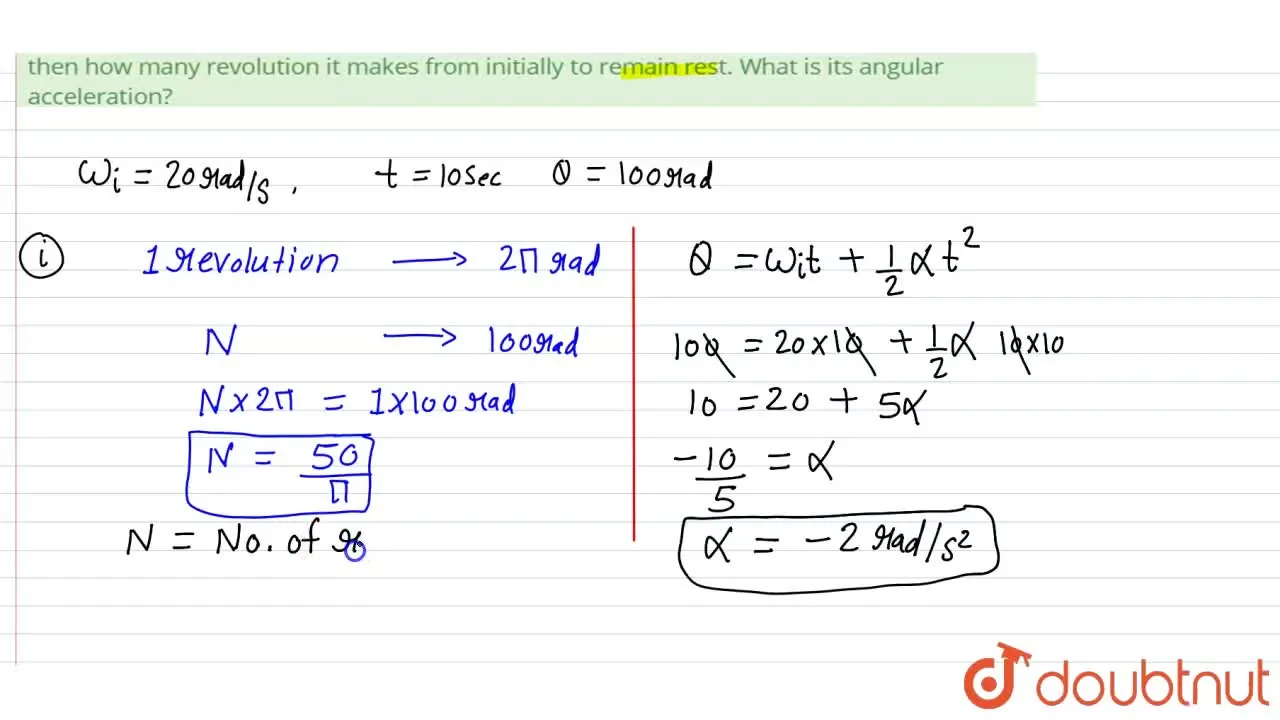 then how many revolution it makes from initially to remain rest. What is its angular
acceleration?
ωi = 20 rad/s , t = 10 sec θ = 100 rad
i
1 revolution → 2π rad
N → 100 rad
N × 2π = 1 × 100 rad
N = 50/π
N = No. of r
θ = ωit + 1/2 αt²
100 = 20 × 10 + 1/2 α 10 × 10
10 = 20 + 5α
-10/5 = α
α = -2 rad/s²
doubtnut